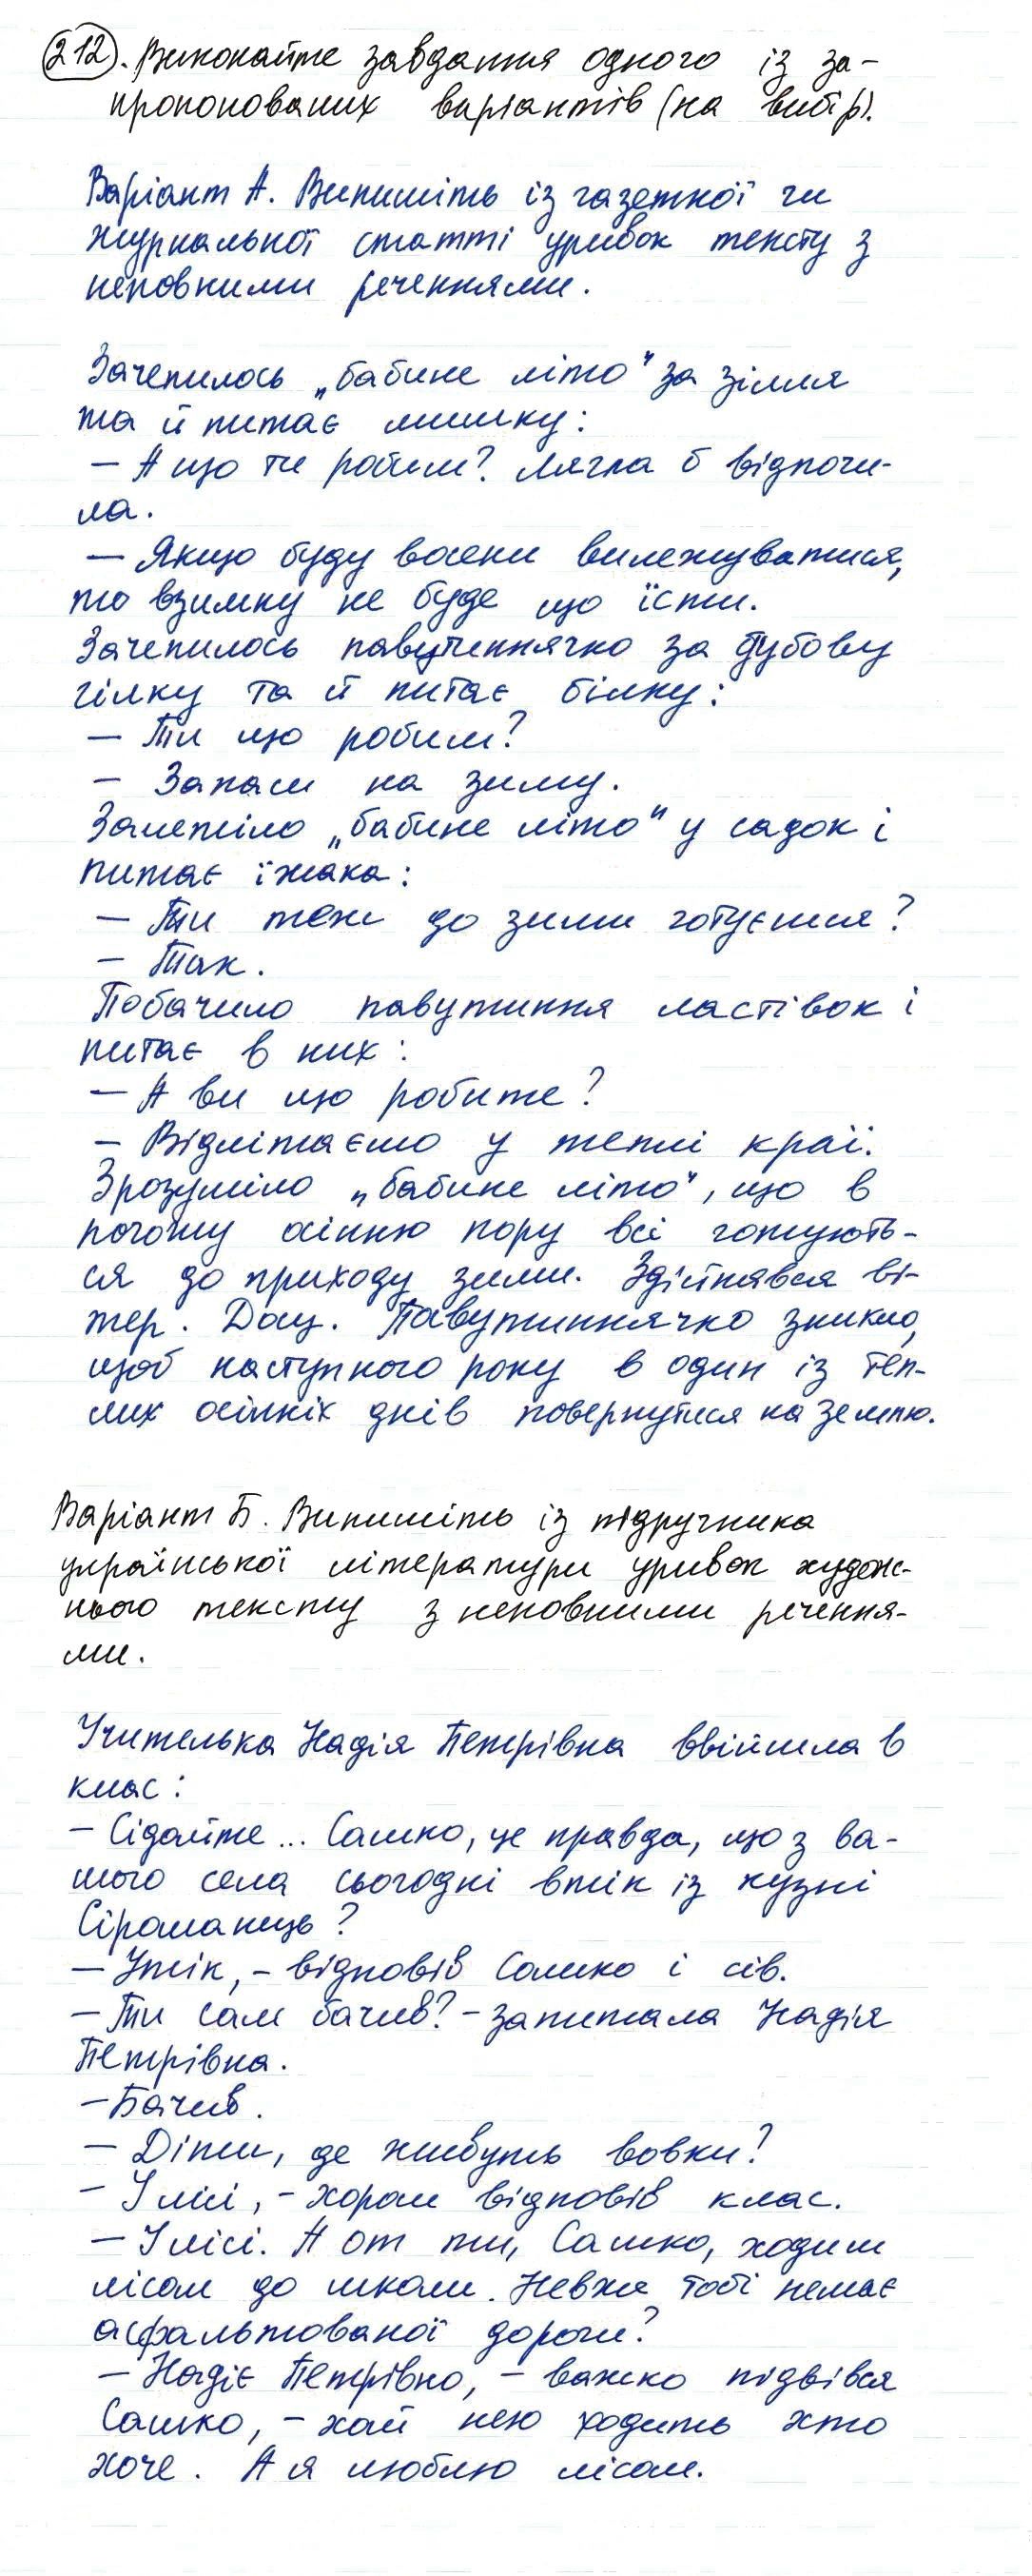 212. Виконайте завдання одного із за-
пропонованих варіантів (на вибір).
Варіант А. Випишіть із газетної чи
журнальної статті уривок тексту з
неповними реченнями.
Зачепилось „бабине літо" за зілля
та й питає мишку:
– А що ти робиш? Лягла б відпочи-
ла.
– Якщо буду восени вилежуватися,
то взимку не буде що їсти.
Зачепилось павутиннячко за дубову
гілку та й питає білку:
– Ти що робиш?
– Запаси на зиму.
Залетіло „бабине літо" у садок і
питає їжака:
– Ти теж до зими готуєшся?
– Так.
Побачило павутиння ластівок і
питає в них:
– А ви що робите?
– Відлітаємо у теплі краї.
Зрозуміло „бабине літо", що в
погожу осінню пору всі готують-
ся до приходу зими. Здійнявся ві-
тер. Дощ. Павутиннячко зникло,
щоб наступного року в один із теп-
лих осінніх днів повернутися на землю.
Варіант Б. Випишіть із підручника
української літератури уривок худож-
нього тексту з неповними речення-
ми.
Учителька Надія Петрівна ввійшла в
клас:
– Сідайте... Сашко, це правда, що з ва-
шого села сьогодні втік із кузні
Сіроманець?
– Утік, – відповів Сашко і сів.
– Ти сам бачив? – запитала Надія
Петрівна.
– Бачив.
– Діти, де живуть вовки?
– У лісі, – хором відповів клас.
– У лісі. А от ти, Сашко, ходиш
лісом до школи. Невже тобі немає
асфальтованої дороги?
– Надіє Петрівно, – важко підвівся
Сашко, – хай нею ходить хто
хоче. А я люблю лісом.